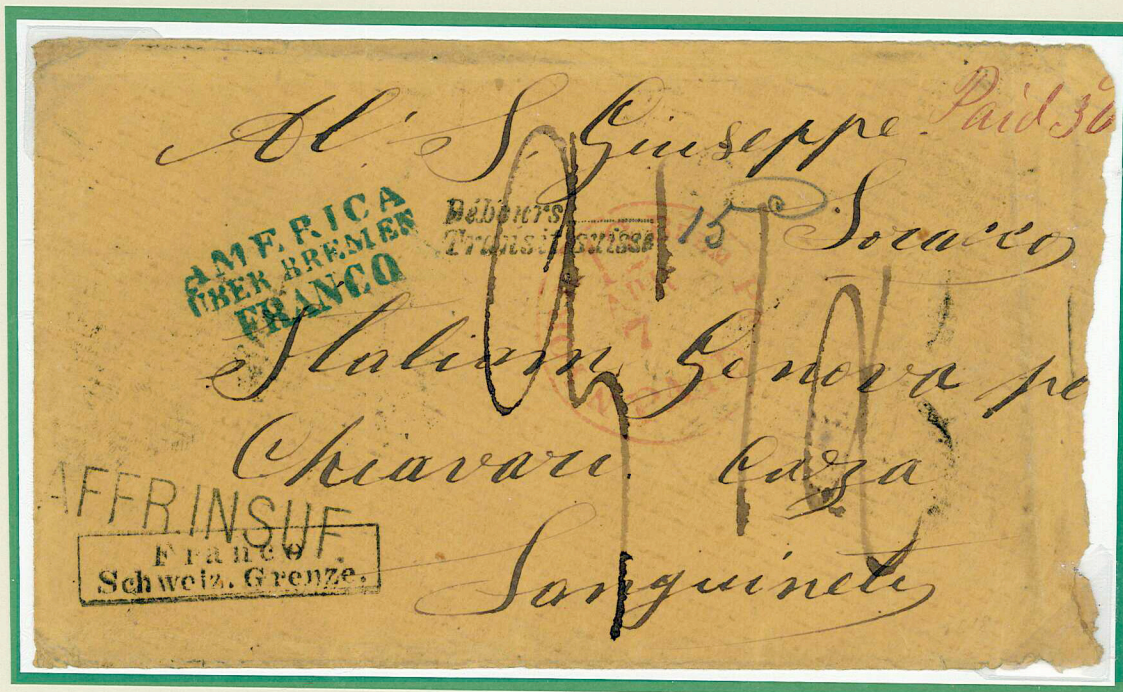 Paid 36
Al S. Giuseppe
Socasso
AMERICA
ÜBER BREMEN
FRANCO
Débours
Transit suisse
15
Italiam, Genova pe
Chiavari. Caza
Sanguineti
AFFR.INSUF.
Franco
Schweiz. Grenze.
7